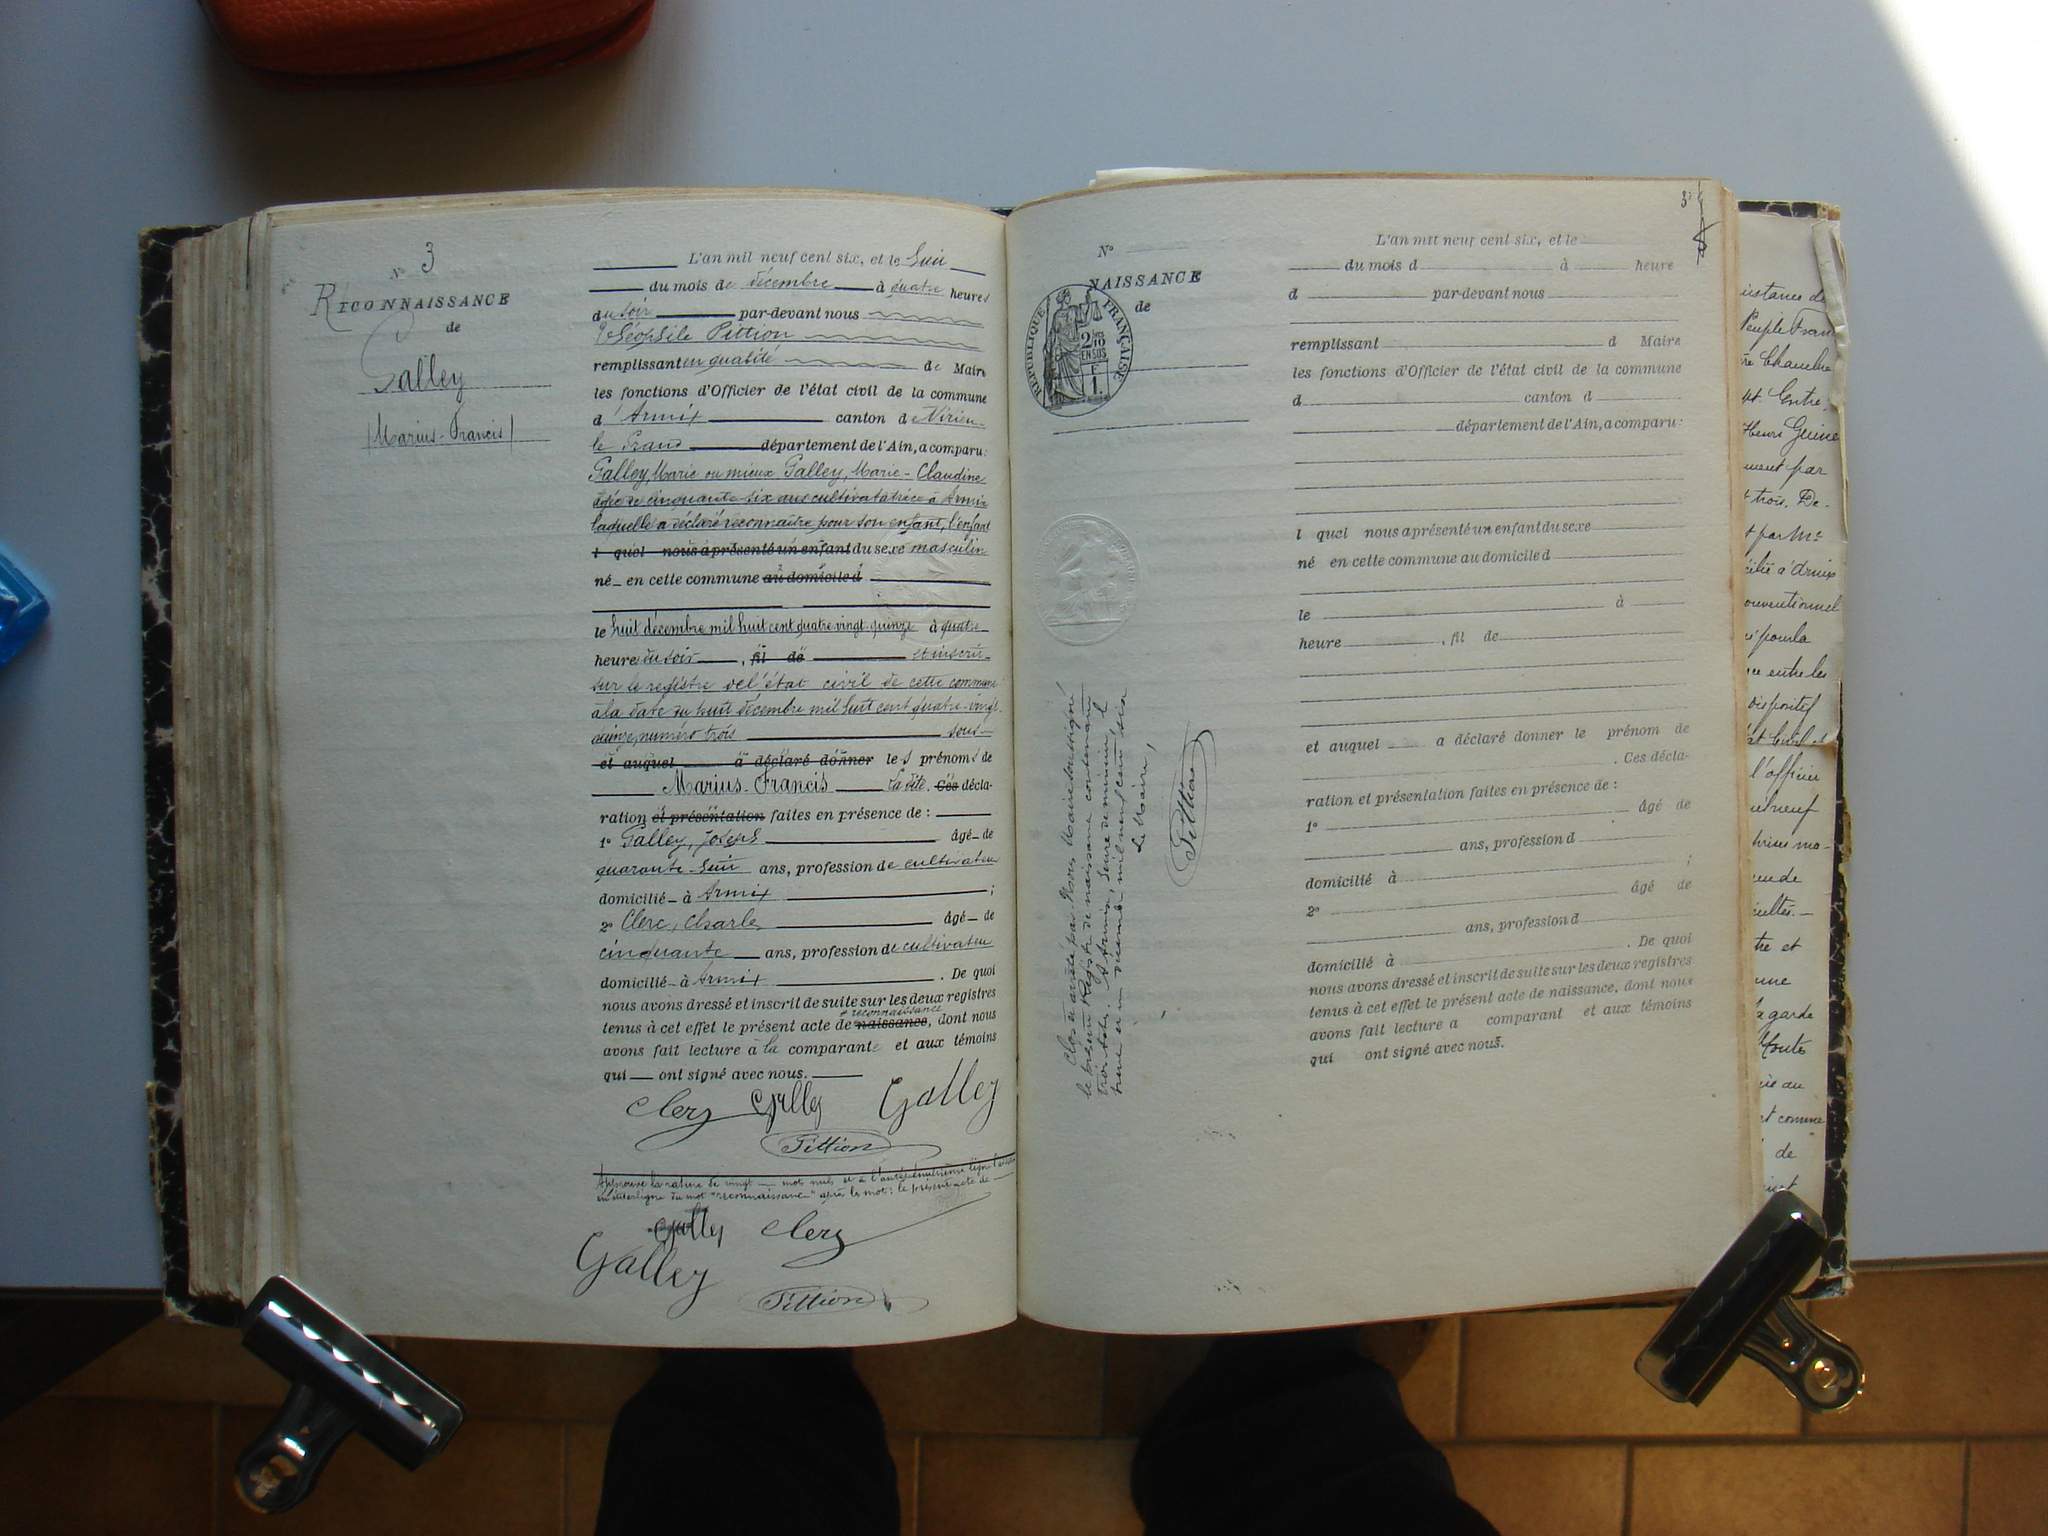 N° 3
RECONNAISSANCE
de
Galley
(Marius-Francis)
L'an mil neuf cent six, et le huit
du mois de décembre à quatre heures
du soir par-devant nous
Théophile Pittion
remplissant en qualité de Maire
les fonctions d'Officier de l'état civil de la commune
d'Armix canton de Virieu-
le Grand département de l'Ain, a comparu:
Galley, Marie ou mieux Galley, Marie-Claudine
âgée de cinquante-six ans cultivatrice à Armix
laquelle a déclaré reconnaître pour son enfant, l'enfant
l quel nous a présenté un enfant du sexe masculin
né en cette commune au domicile d
le huit décembre mil huit cent quatre-vingt-quinze à quatre
heures du soir, fil de et inscrit
sur le registre de l'état civil de cette commune
à la date du huit décembre mil huit cent quatre-vingt-
quinze, numéro trois sous
et auquel a déclaré donner les prénoms de
Marius-Francis La dite. Ces décla-
ration et présentation faites en présence de :
1° Galley, Joseph âgé de
quarante-huit ans, profession de cultivateur
domicilié à Armix ;
2° Clerc, Charles âgé de
cinquante ans, profession de cultivateur
domicilié à Armix . De quoi
nous avons dressé et inscrit de suite sur les deux registres
reconnaissance
tenus à cet effet le présent acte de naissance, dont nous
avons fait lecture à la comparante et aux témoins
qui ont signé avec nous.
Clerc Galley Galley
Pittion
Approuvé la rature de vingt mots nuls et à l'antépénultième ligne
en interligne du mot "reconnaissance" après les mots: le présent acte de
Galley Clerc
Galley
Pittion
N°
NAISSANCE
de
RÉPUBLIQUE FRANÇAISE
2/10
EN SUS
1 F.
Clos et arrêté par Nous Maire soussigné
le présent Registre de naissance contenant
trois actes. A Armix, heure de minuit, le
trente et un décembre mil neuf cent six
Le Maire,
Pittion
3
L'an mil neuf cent six, et le
du mois d à heure
d par-devant nous
remplissant d Maire
les fonctions d'Officier de l'état civil de la commune
d canton d
département de l'Ain, a comparu:
l quel nous a présenté un enfant du sexe
né en cette commune au domicile d
le à
heure , fil de
et auquel a déclaré donner le prénom de
. Ces décla-
ration et présentation faites en présence de :
1° âgé de
ans, profession d
domicilié à ;
2° âgé de
ans, profession d
domicilié à . De quoi
nous avons dressé et inscrit de suite sur les deux registres
tenus à cet effet le présent acte de naissance, dont nous
avons fait lecture a comparant et aux témoins
qui ont signé avec nous.
Peuple Fran
Chambre
Entre
Henri
par
trois. De-
par Me
à Armix
pour la
entre les
dispositif
l'officier
de
tre et
garde
au
comme
de